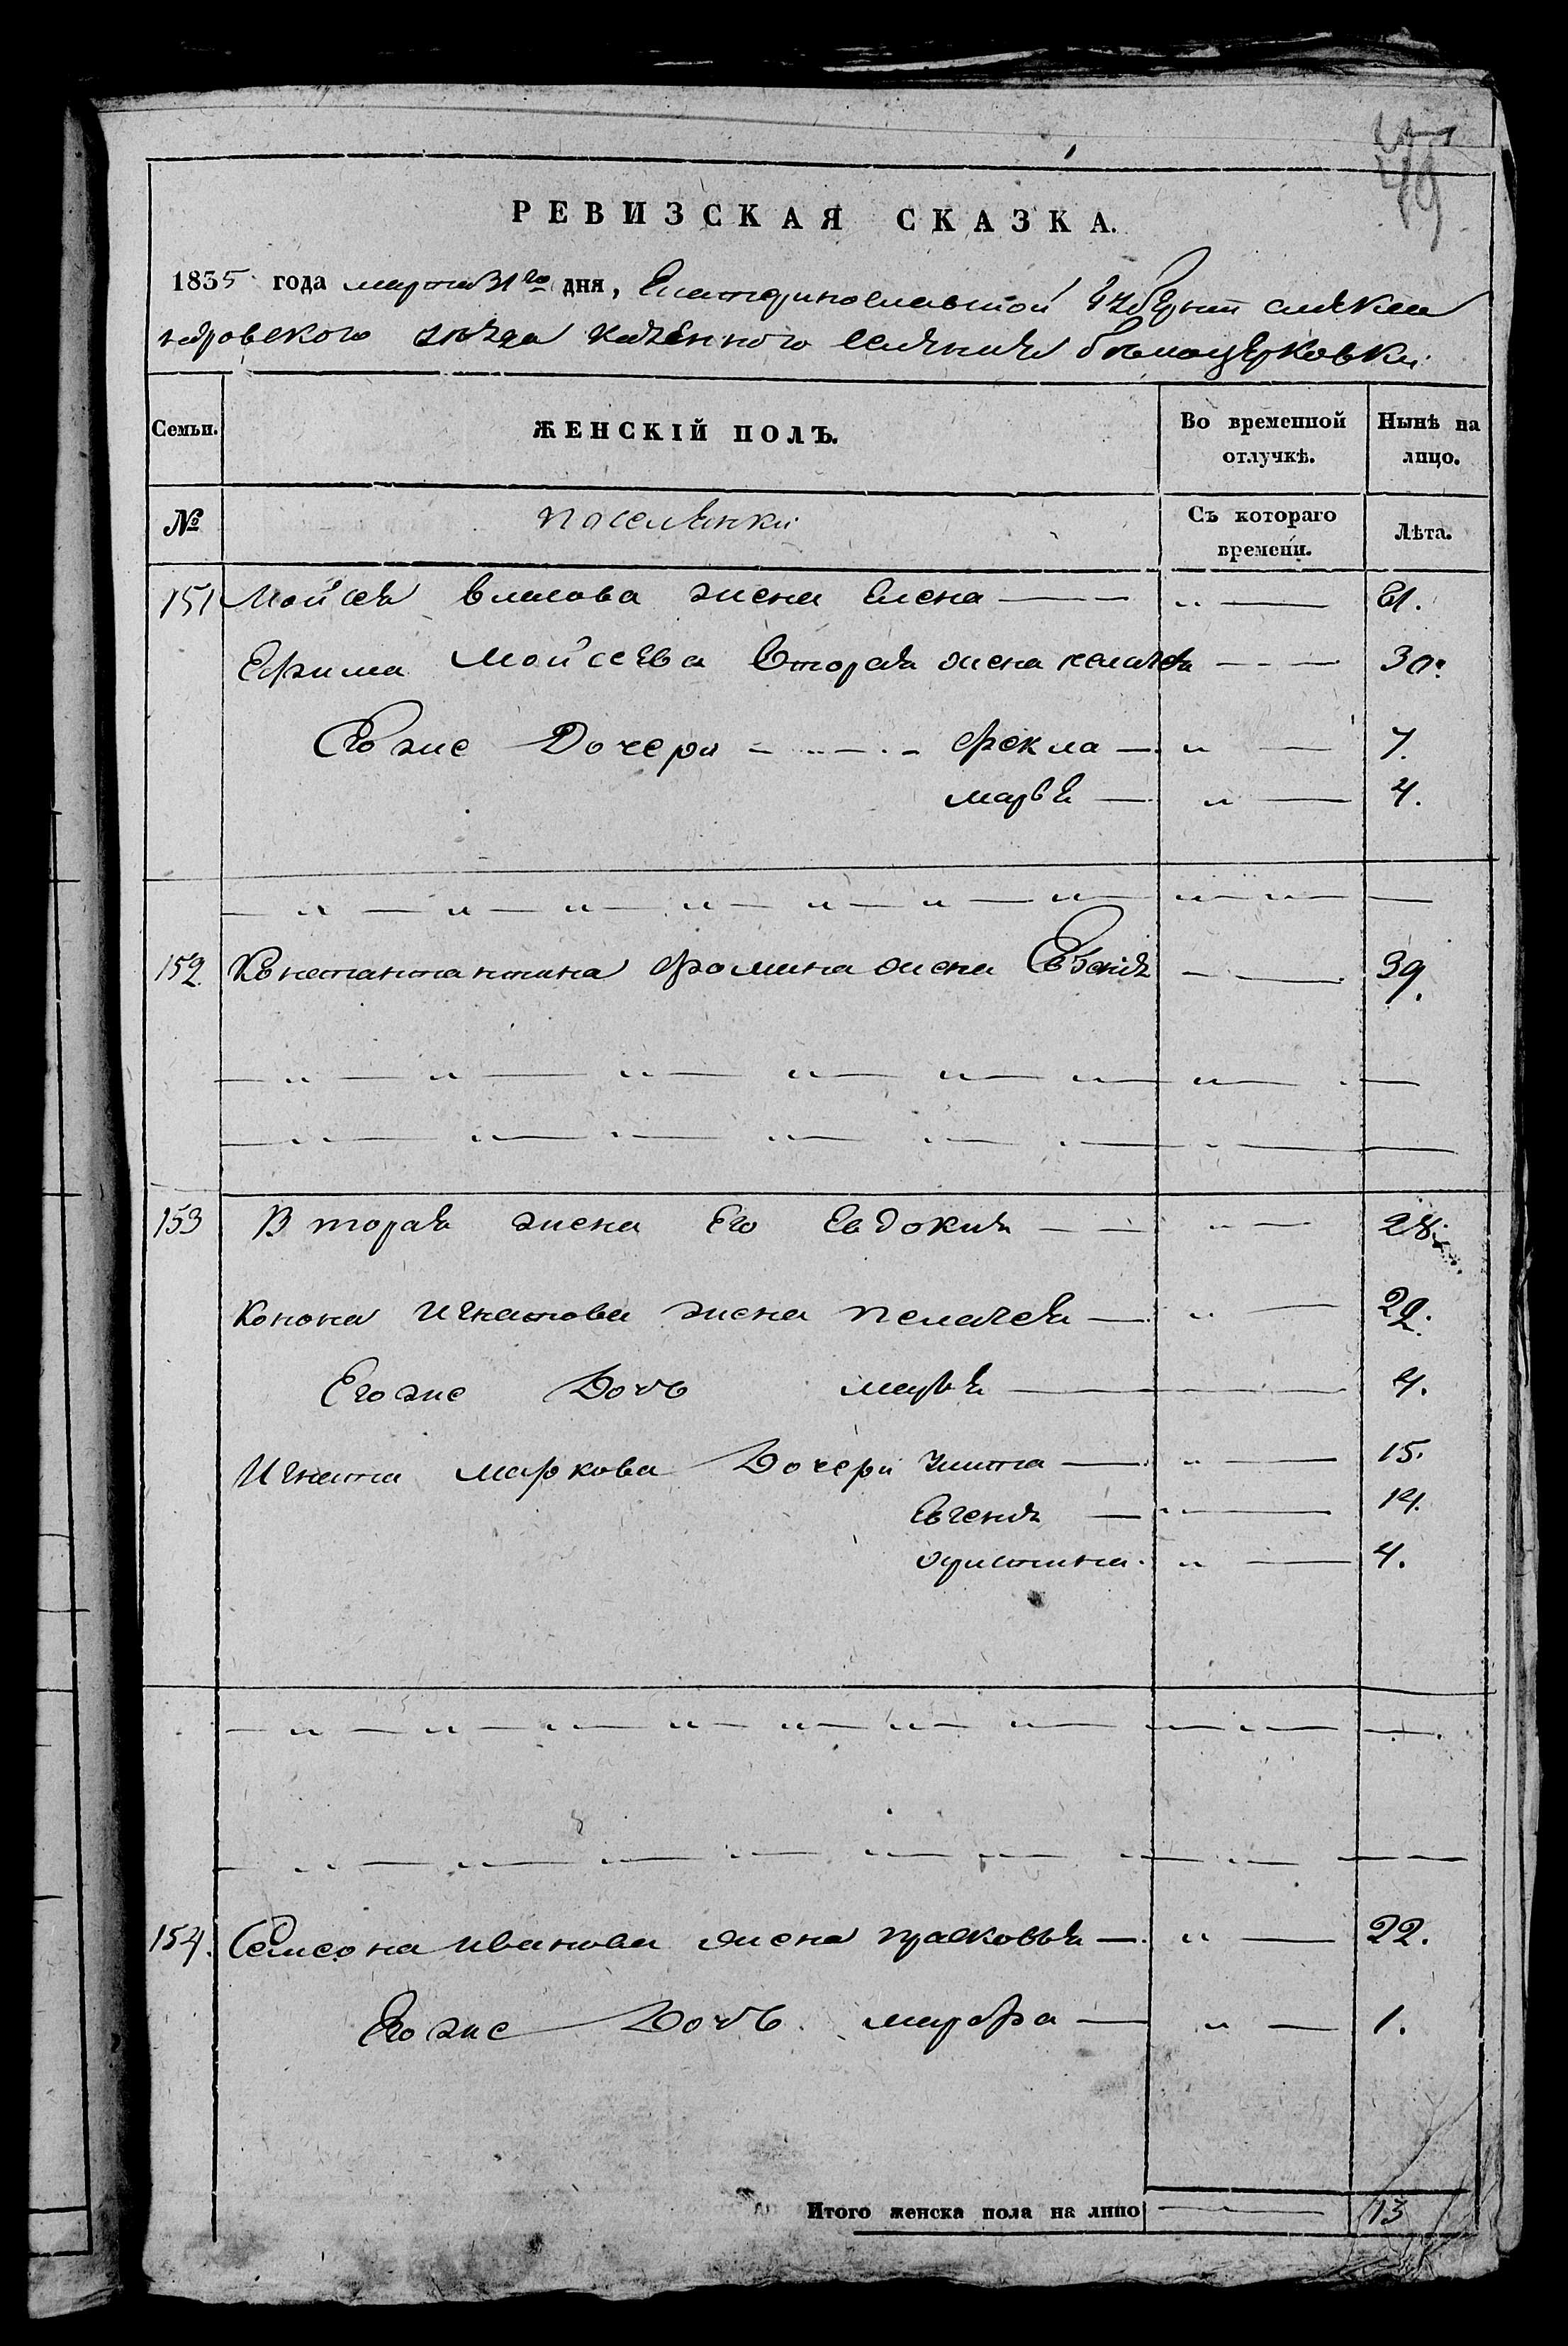 49
РЕВИЗСКАЯ СКАЗКА.
1835 года марта 31го дня, Екатеринославской Губерніи Алекса
ндровского уѣзда казенного селенія бѣлоцерковки
Семьи. ЖЕНСКІЙ ПОЛЪ. Во временной отлучкѣ. Нынѣ на лицо.
№ поселянки Съ котораго времени. Лѣта.
151 Мойсея власова жена Елена — " — 61.
Ефима Мойсеева вторая жена пелагея — 30.
Его же Дочери — Фекла — " — 7.
марья — " — 4.
152. Константина Фомина жена Евгенія — 39.
153 Вторая жена Его Евдокия — " — 28.
Конона Игнатова жена пелагея — " — 29.
Его же Дочь марья — 4.
Игната маркова Дочери улита — " — 15.
Евгения — " — 14.
христина. " — 4.
154. Самсона иванова жена прасковья — " — 22.
Его же Дочь марфа — " — 1.
Итого женска пола на лицо — 13